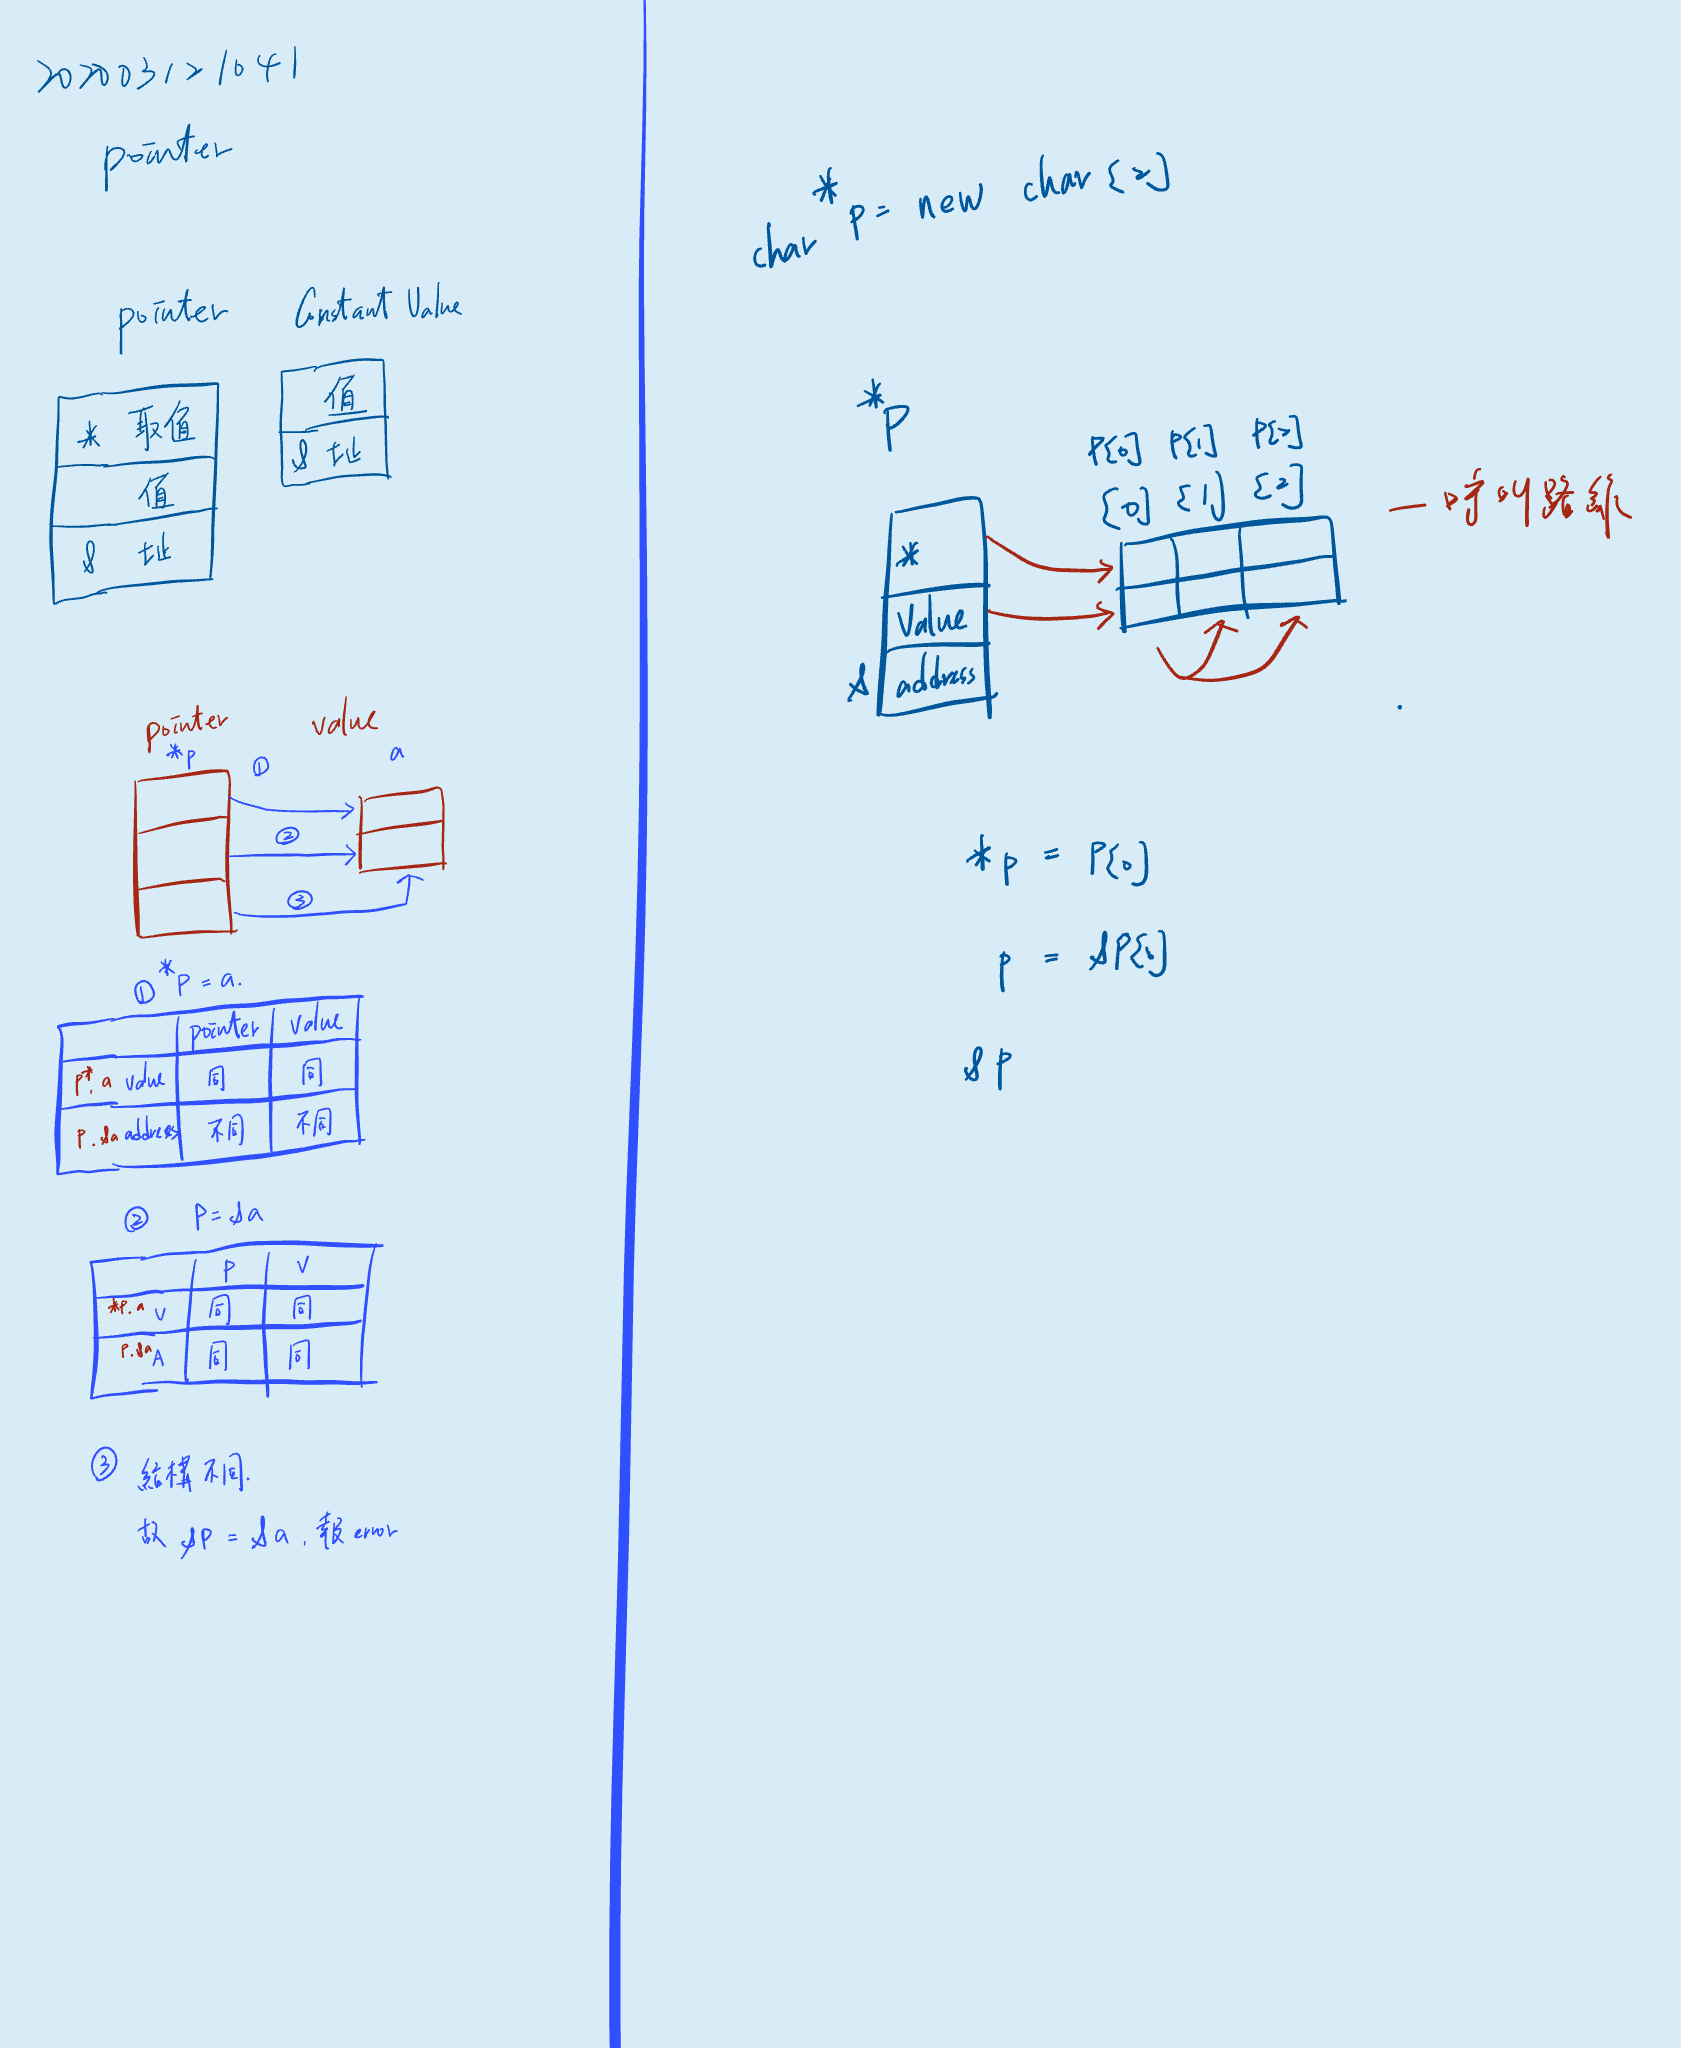 202003121041
pointer
pointer Constant Value
* 取值
值
& 址
值
& 址
pointer value
*p ① a
②
③
① *p = a.
pointer value
p*. a value 同 同
p. &a address 不同 不同
② p = &a
p v
*p. a v 同 同
p. &a A 同 同
③ 結構不同.
故 &p = &a, 報error
char *p = new char [2]
*p
p[0] p[1] p[2]
[0] [1] [2]
*
Value
& address
— 呼叫路線
*p = p[0]
p = &p[0]
&p